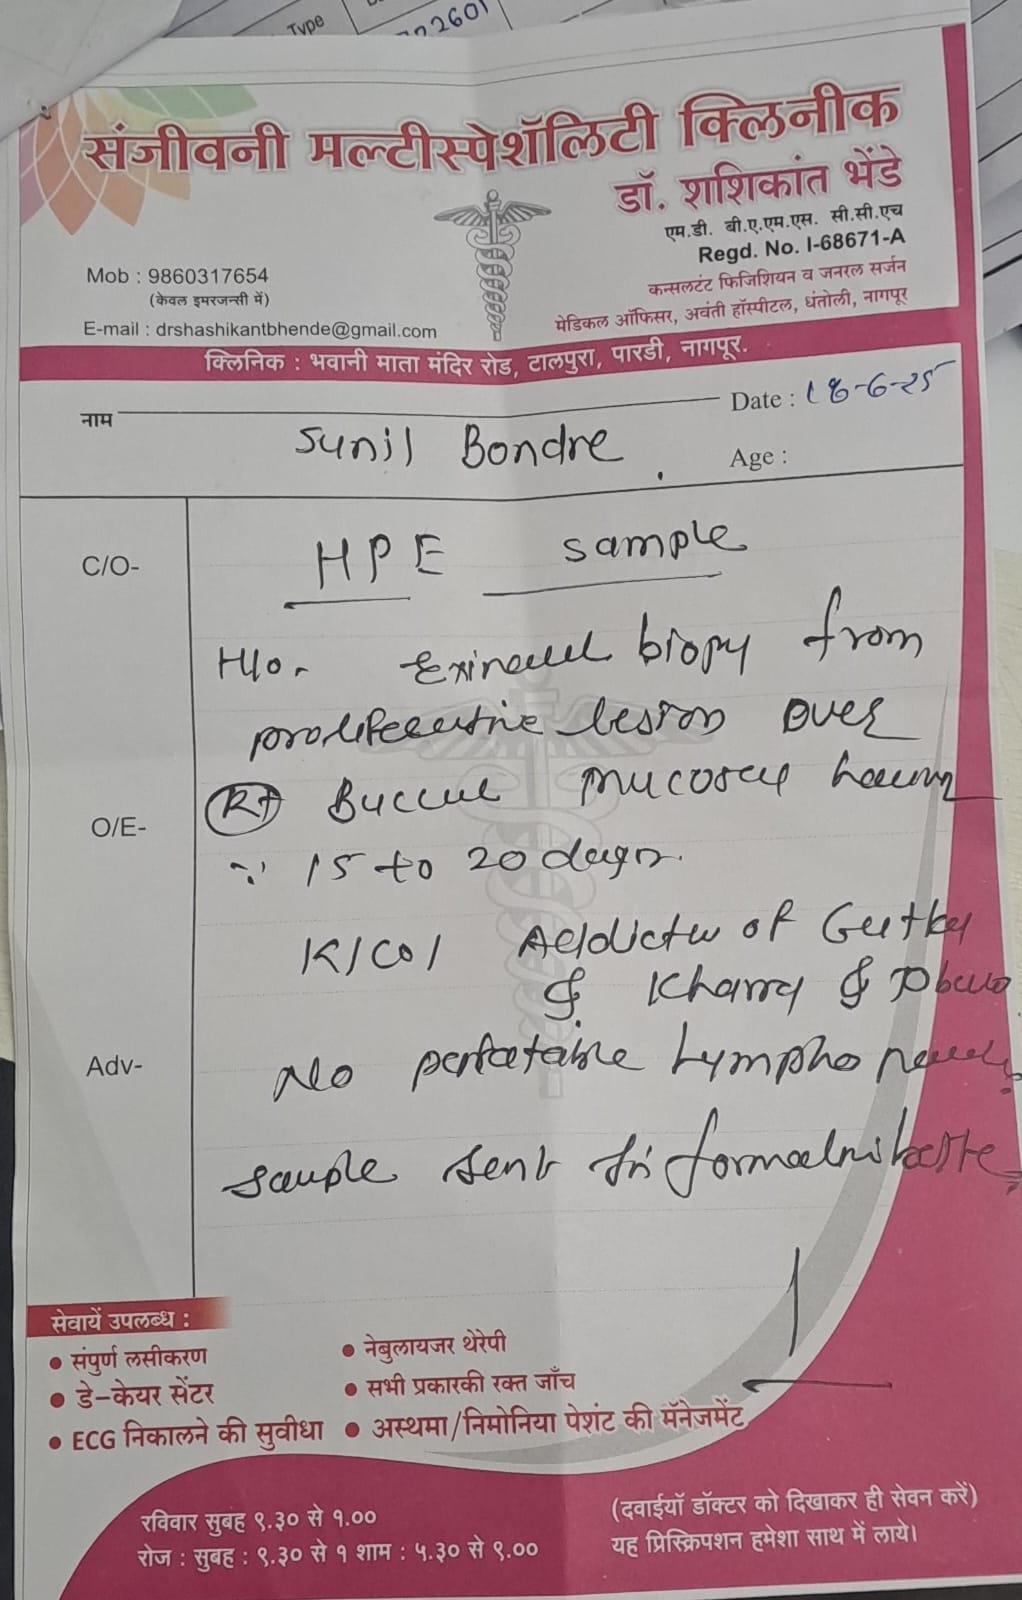 Type
22601
संजीवनी मल्टीस्पेशॅलिटी क्लिनीक
डॉ. शशिकांत भेंडे
एम.डी. बी.ए.एम.एस. सी.सी.एच
Regd. No. I-68671-A
कन्सलटंट फिजिशियन व जनरल सर्जन
मेडिकल ऑफिसर, अवंती हॉस्पीटल, धंतोली, नागपूर
Mob : 9860317654
(केवल इमरजन्सी में)
E-mail : drshashikantbhende@gmail.com
क्लिनिक : भवानी माता मंदिर रोड, टालपुरा, पारडी, नागपूर.
नाम Sunil Bondre
Date : 18-6-25
Age :
C/O- HPE sample
H/O- biopy from
lesion over
O/E- (Rt) Buccal mucosa
15 to 20 days.
K/C/O/ of Gutka
& Kharra &
Adv- No Lympho
sample sent in
सेवायें उपलब्ध :
• संपुर्ण लसीकरण
• डे-केयर सेंटर
• ECG निकालने की सुवीधा
• नेबुलायजर थेरेपी
• सभी प्रकारकी रक्त जाँच
• अस्थमा/निमोनिया पेशंट की मॅनेजमेंट
रविवार सुबह ९.३० से १.००
रोज : सुबह : ९.३० से १ शाम : ५.३० से ९.००
(दवाईयाँ डॉक्टर को दिखाकर ही सेवन करें)
यह प्रिस्क्रिपशन हमेशा साथ में लाये।